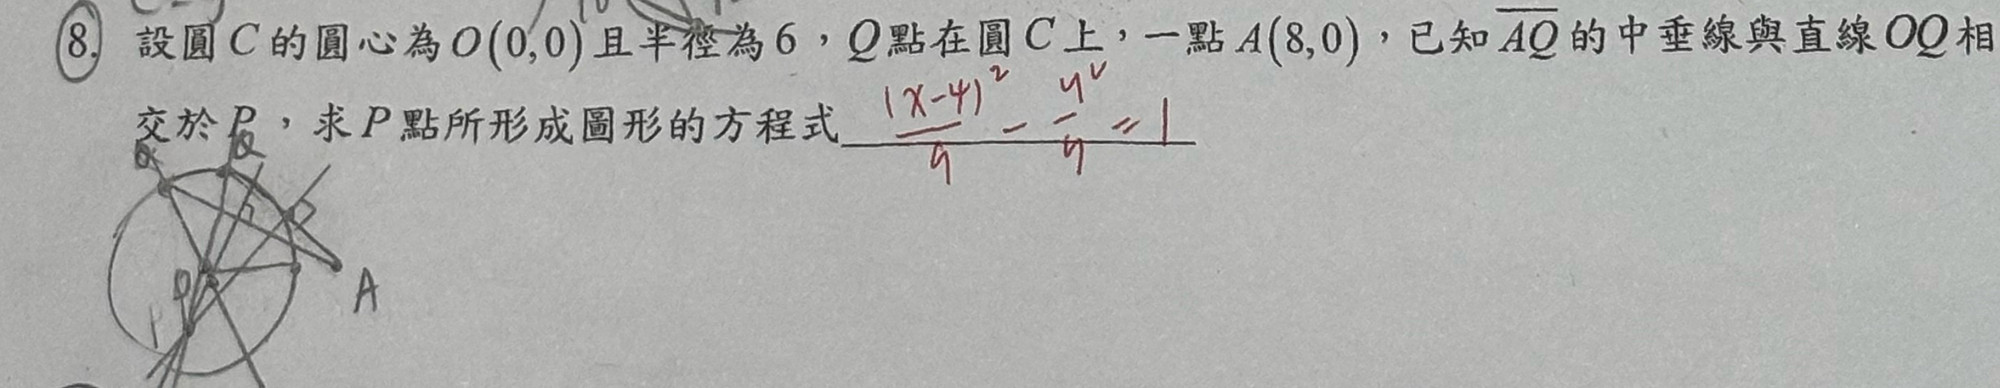 8. 設圓 C 的圓心為 O(0,0) 且半徑為 6，Q 點在圓 C 上，一點 A(8,0)，已知 \overline{AQ} 的中垂線與直線 OQ 相
交於 P，求 P 點所形成圖形的方程式 \frac{(x-4)^2}{9} - \frac{y^2}{9} = 1
Q Q
O A
P